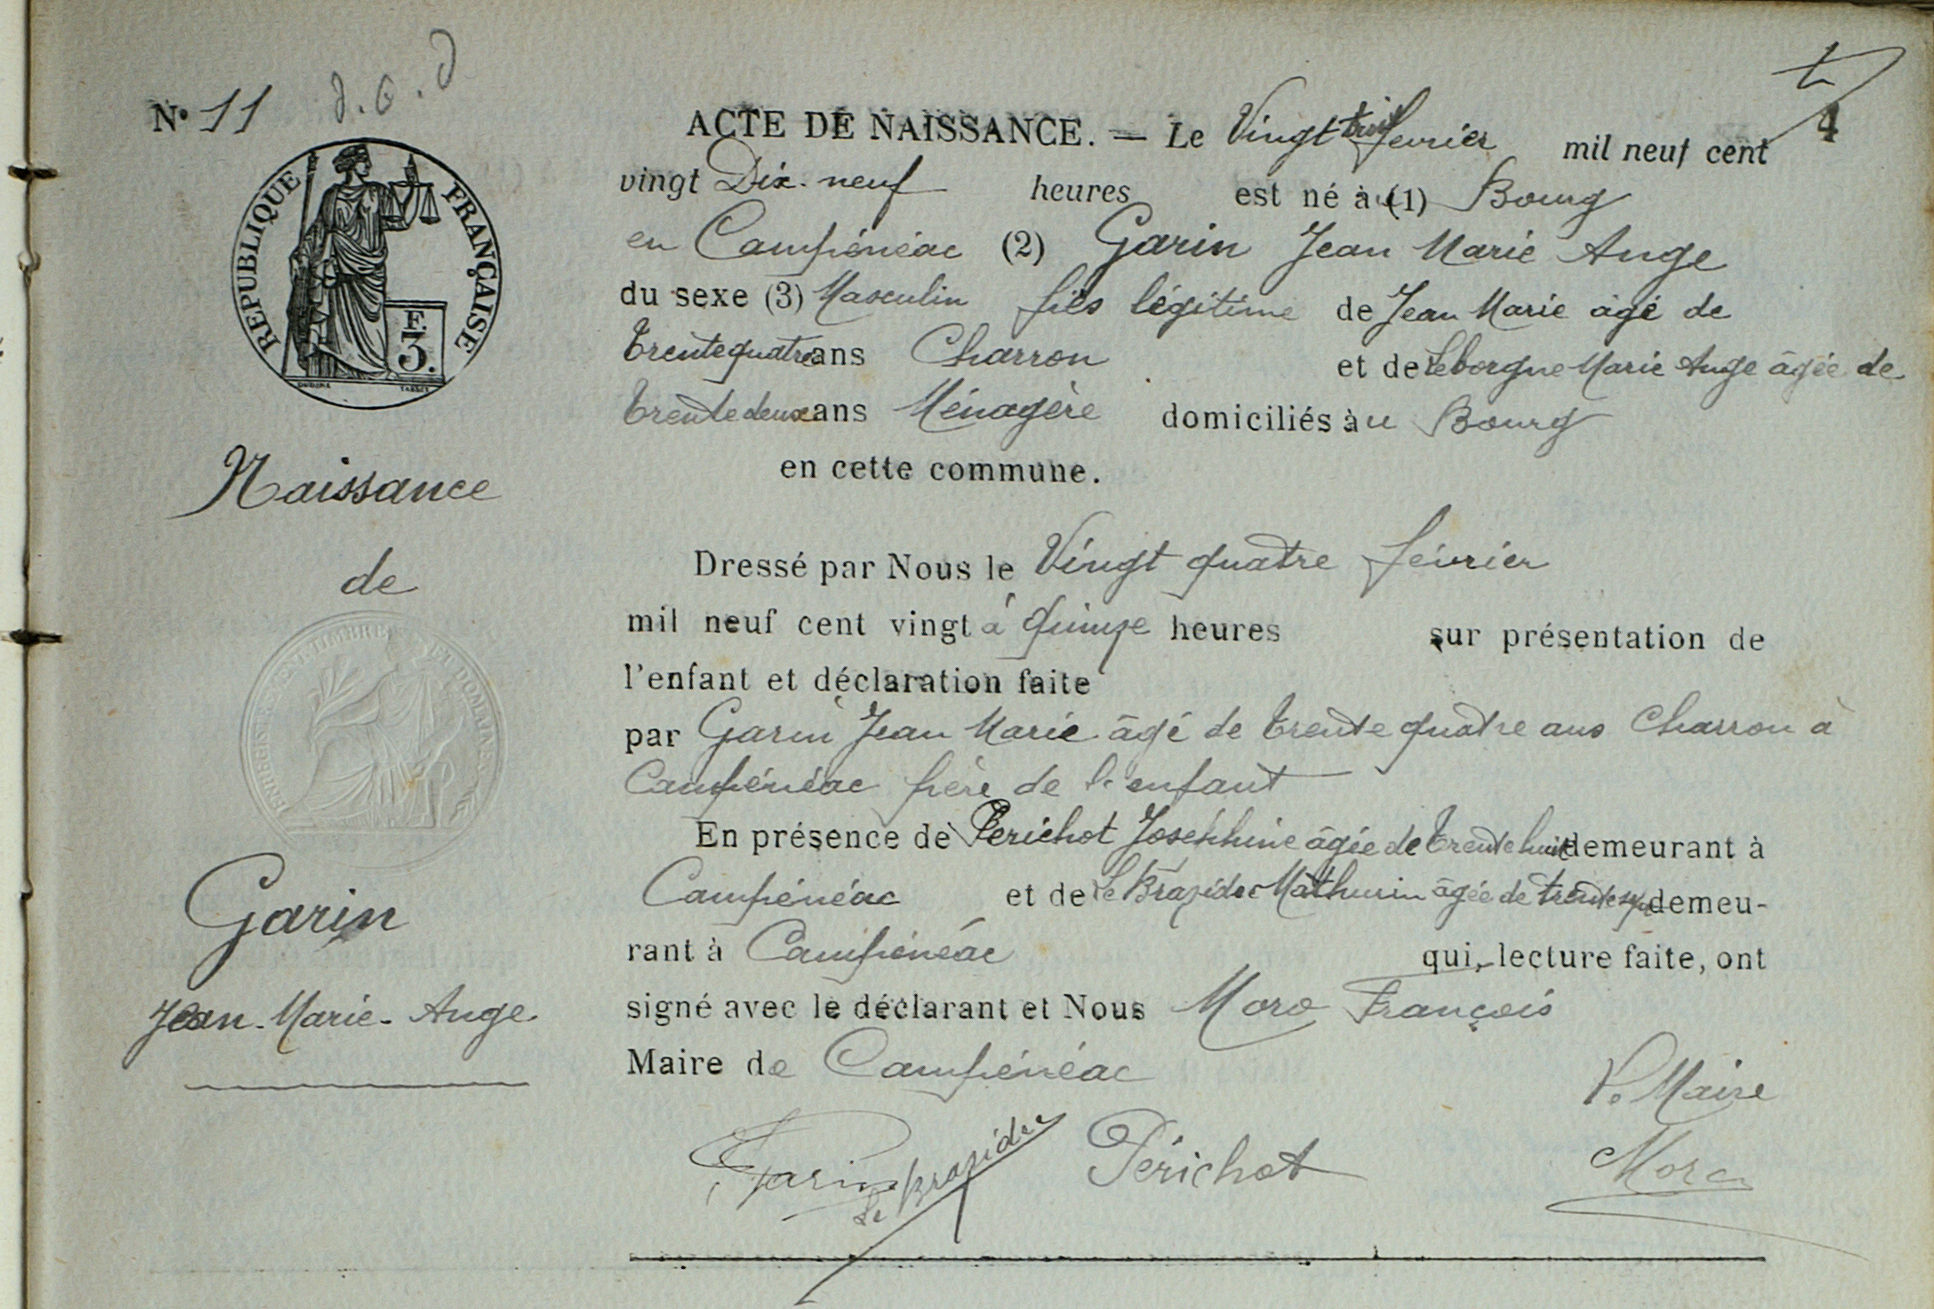 N° 11
RÉPUBLIQUE FRANÇAISE
F.
3.
Naissance
de
Garin
Jean-Marie-Ange
4
ACTE DE NAISSANCE. — Le Vingt trois février mil neuf cent
vingt Dix-neuf heures est né à u (1) Bourg
en Campénéac (2) Garin Jean Marie Ange
du sexe (3) Masculin fils légitime de Jean Marie âgé de
trente quatre ans Charron et de Leborgne Marie Ange âgée de
trente deux ans Ménagère domiciliés à u Bourg
en cette commune.
Dressé par Nous le Vingt quatre février
mil neuf cent vingt à quinze heures sur présentation de
l'enfant et déclaration faite
par Garin Jean Marie âgé de trente quatre ans Charron à
Campénéac père de l'enfant
En présence de Perichot Joséphine âgée de trente huit demeurant à
Campénéac et de Le Brazidec Mathurin âgée de trente demeu-
rant à Campénéac qui, lecture faite, ont
signé avec le déclarant et Nous Moro François
Maire de Campénéac
L. Maire
Garin Le Brazidec Périchot Moro